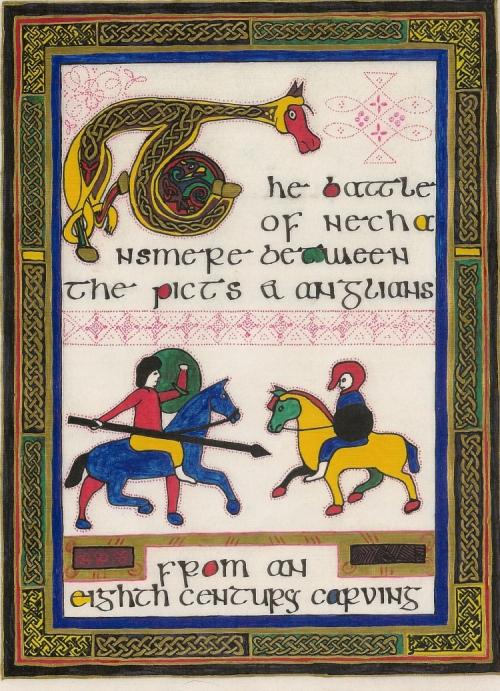 The battle
of Necha
nsmere between
the picts & anglians
from an
eighth century carving